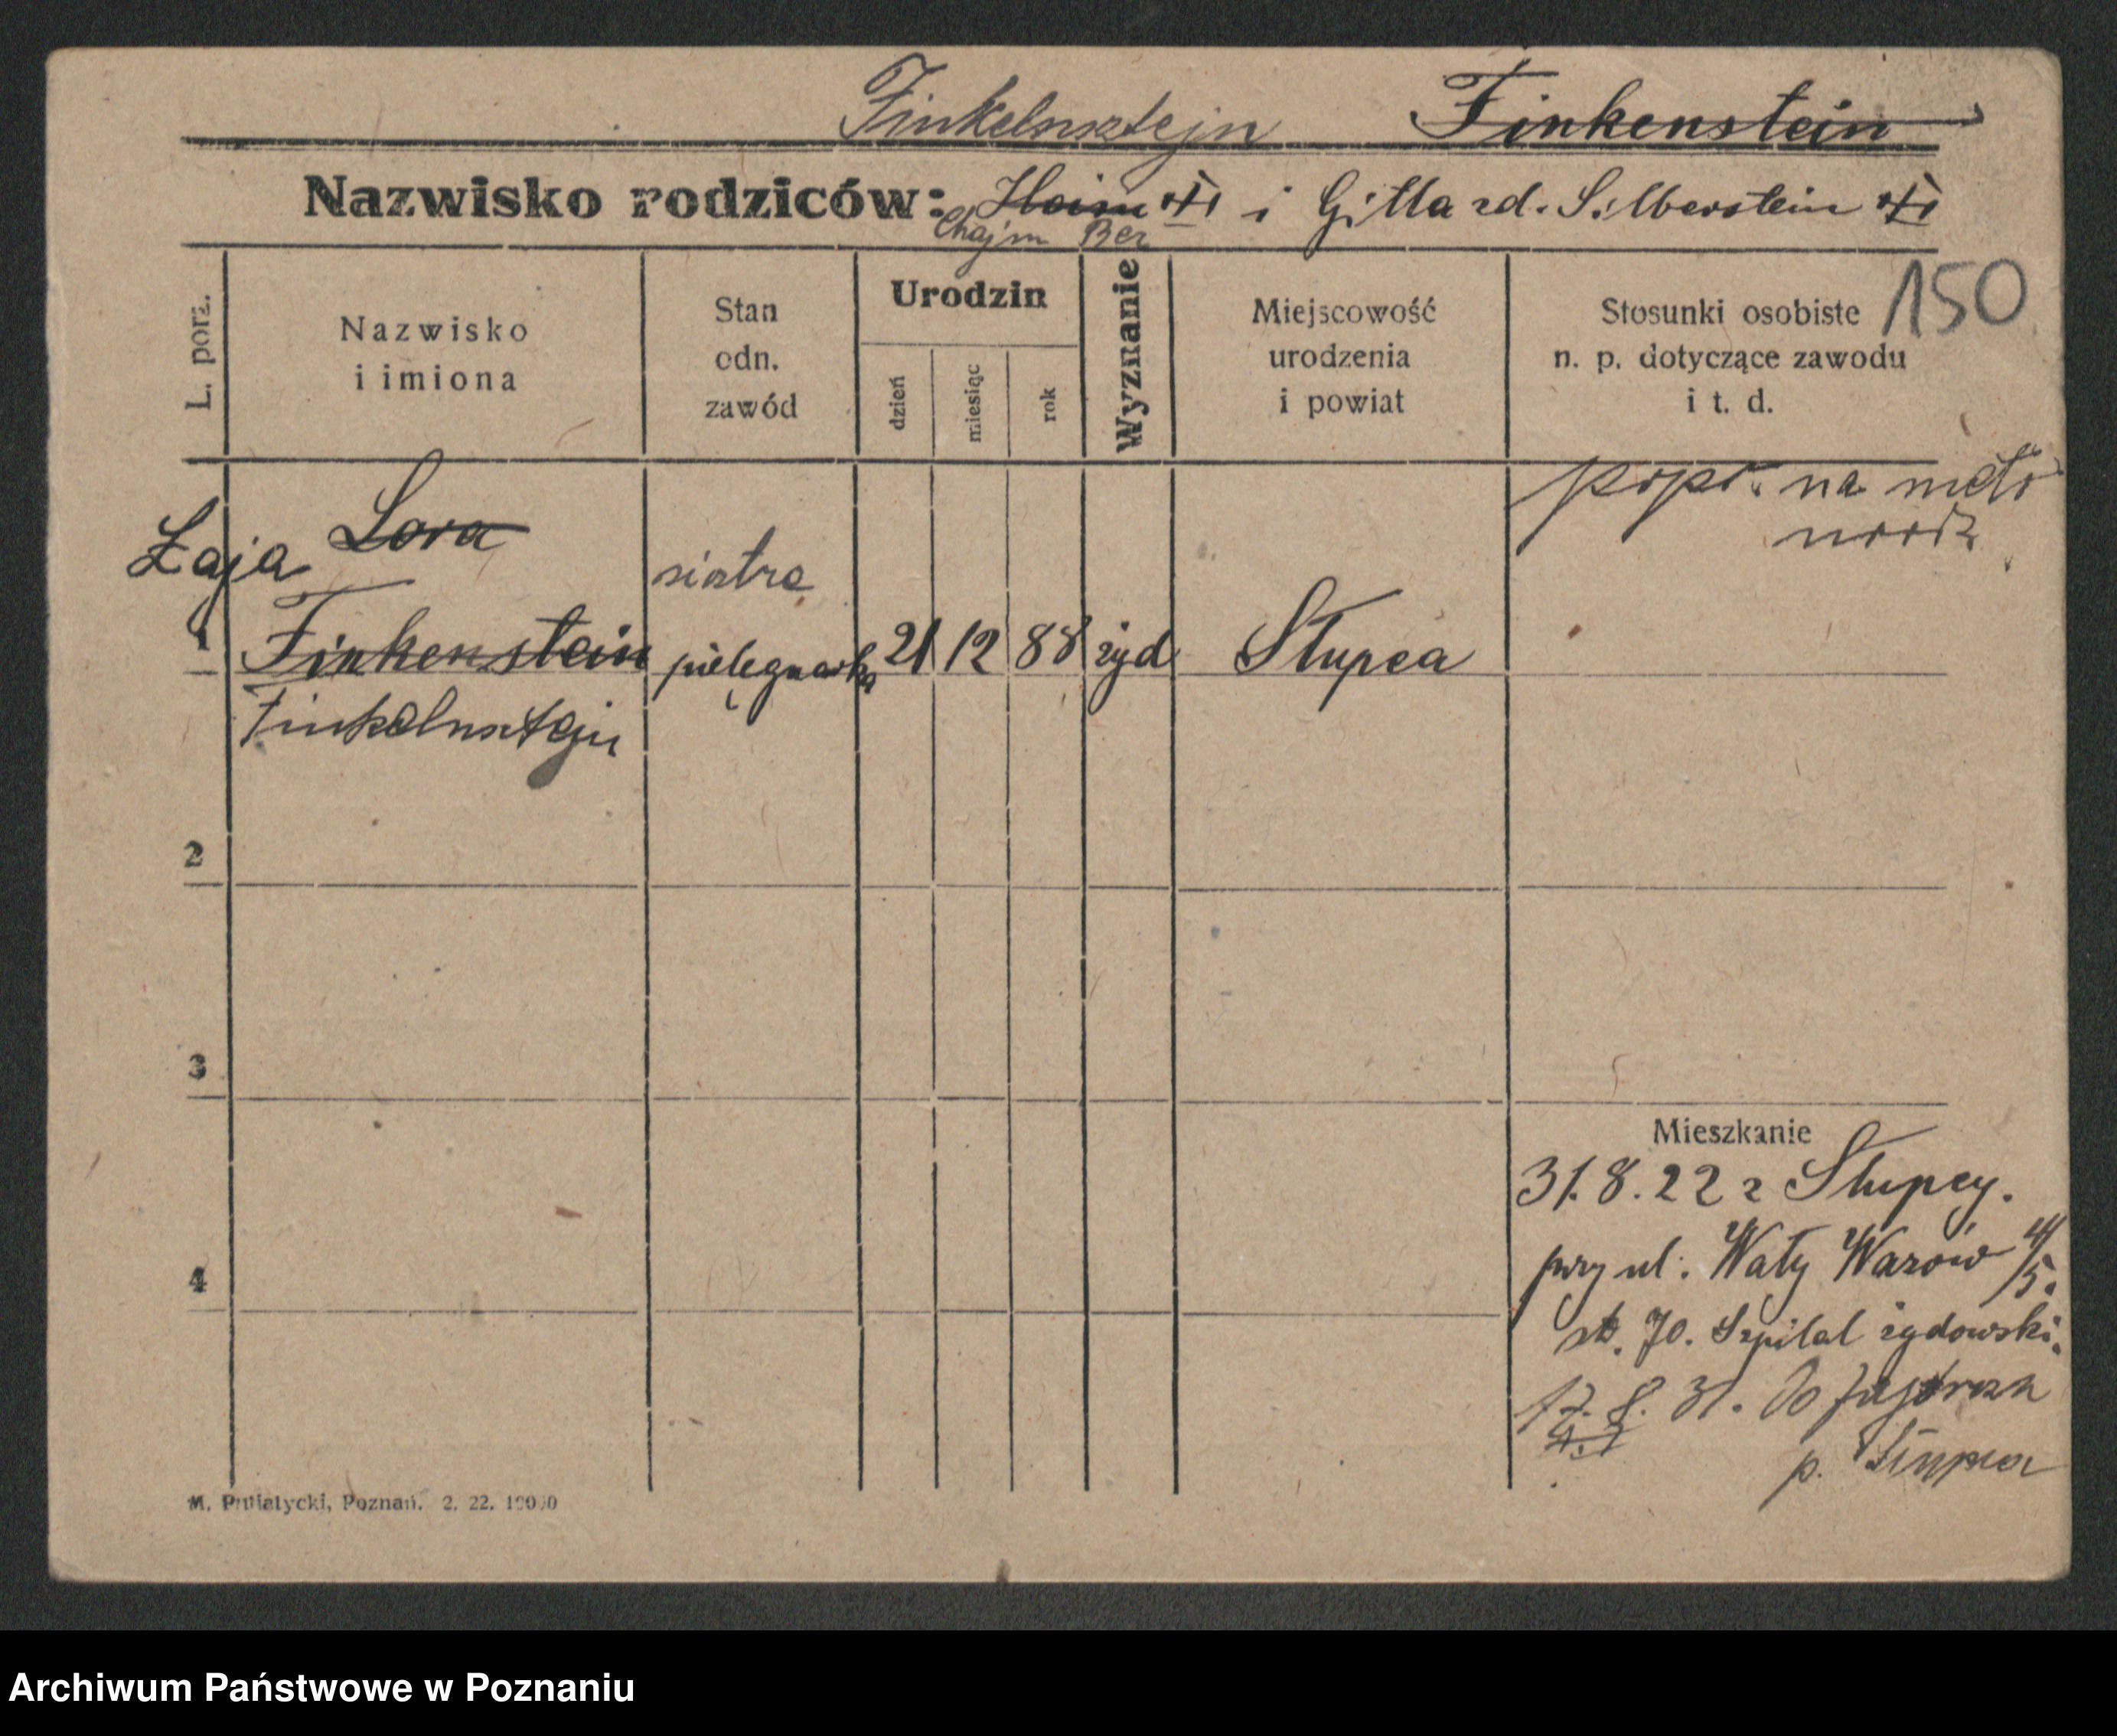 Finkelnsztejn Finkenstein
Nazwisko rodziców: Haim i Gitla zd. Silberstein
Chajm Ber
L. porz.
Nazwisko
i imiona
Stan
odn.
zawód
Urodzin
dzień
miesiąc
rok
Wyznanie
Miejscowość
urodzenia
i powiat
Stosunki osobiste
n. p. dotyczące zawodu
i t. d.
150
popr. na metr
urodz
Łaja Lora
siostra
1 Finkenstein pielęgniarka 21 12 88 żyd Słupca
Finkelnsztejn
2
3
4
Mieszkanie
31.8.22 z Słupcy.
przy ul. Wały Wazów 4/5.
st. 70. Szpital żydowski.
17. 8. 31. Do
p. Słupca
M. Putiatycki, Poznań. 2. 22. 10000
Archiwum Państwowe w Poznaniu